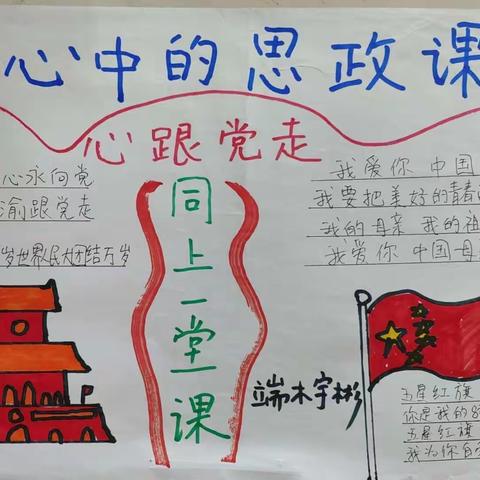 心中的思政课
心跟党走
心永向党
渝跟党走
岁世界人民大团结万岁
同上一堂课
我爱你 中国
我要把美好的青春
我的母亲 我的祖
我爱你 中国母
端木宇彬
五星红旗
你是我的
五星红旗
我为你自